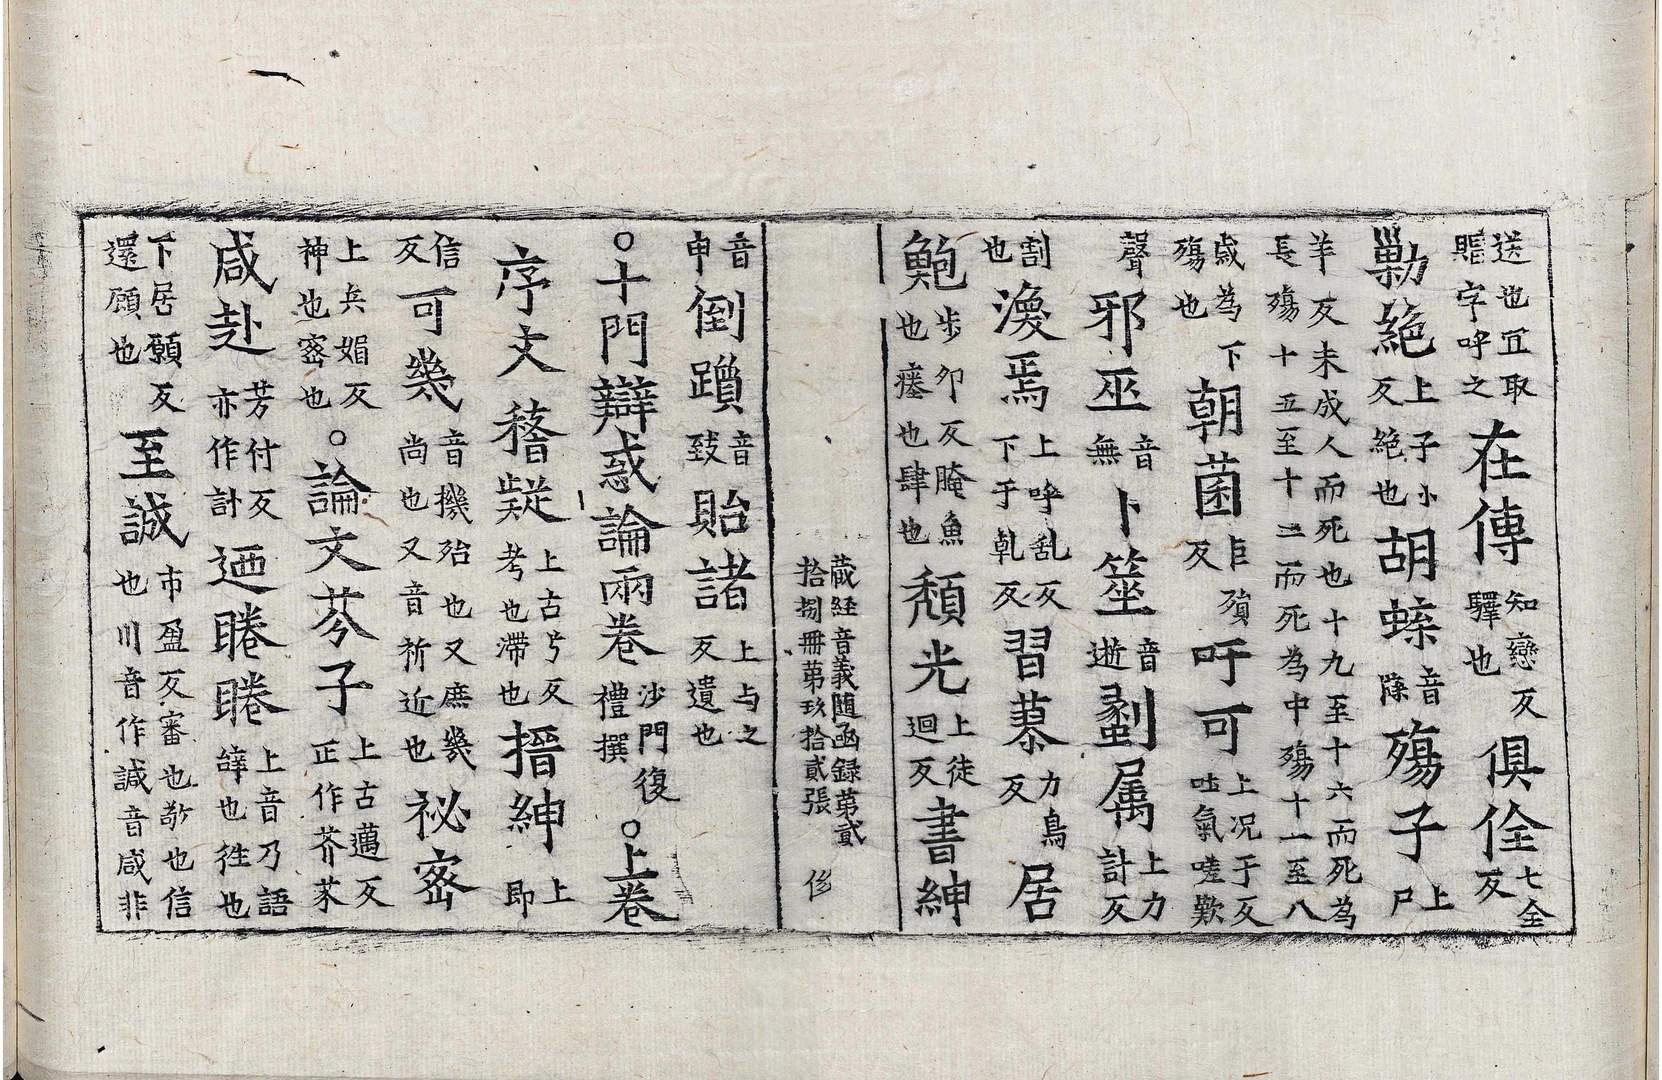 送也宜取賵字呼之在傳知戀反驛也俱佺七全反
勦絕上子小反絕也胡蜍音除殤子上尸
羊反未成人而死也十九至十六而死為長殤十五至十二而死為中殤十一至八
歲為下殤也朝菌巨殞反吁可上況于反吐氣嗟歎
聲邪巫音無卜筮音逝剷属上力計反
割也渙焉上呼乱反下于乹反習募力鳥反居
鮑步卯反腌魚也瘗也肆也頽光上徒迴反書紳
藏経音義随函録第貳拾捌冊第玖拾貳張 侈
音申倒躓音致貽諸上与之反遺也
○十門辯惑論兩卷沙門復禮撰○上卷
序文稽疑上古兮反考也滯也搢紳上即
信反可幾音機殆也又庶幾尚也又音祈近也祕宻
上兵媚反神也宻也○論文芥子上古邁反正作芥芥
咸赴芳付反亦作訃迺睠睠上音乃語辝也徃也
下居願反還顧也至誠市盈反審也敬也信也川音作諴音咸非